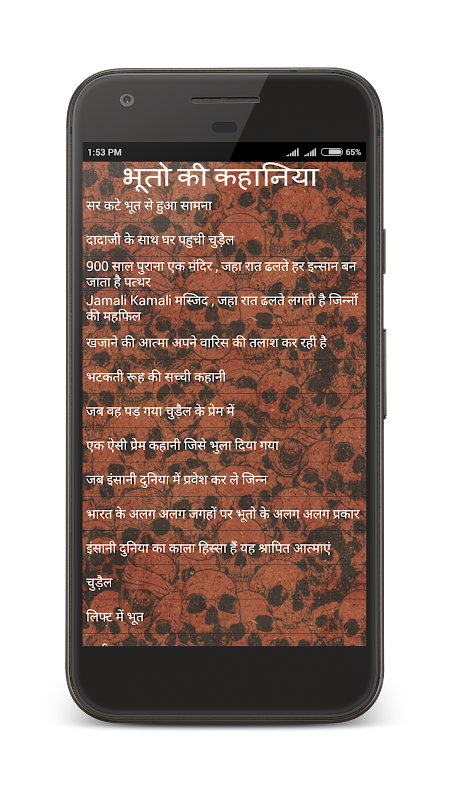 1:53 PM 65%
भूतो की कहानिया
सर कटे भूत से हुआ सामना
दादाजी के साथ घर पहुची चुड़ैल
900 साल पुराना एक मंदिर , जहा रात ढलते हर इन्सान बन
जाता है पत्थर
Jamali Kamali मस्जिद , जहा रात ढलते लगती है जिन्नों
की महफिल
खजाने की आत्मा अपने वारिस की तलाश कर रही है
भटकती रूह की सच्ची कहानी
जब वह पड़ गया चुड़ैल के प्रेम में
एक ऐसी प्रेम कहानी जिसे भुला दिया गया
जब इंसानी दुनिया में प्रवेश कर ले जिन्न
भारत के अलग अलग जगहों पर भूतो के अलग अलग प्रकार
इंसानी दुनिया का काला हिस्सा हैं यह श्रापित आत्माएं
चुड़ैल
लिफ्ट में भूत